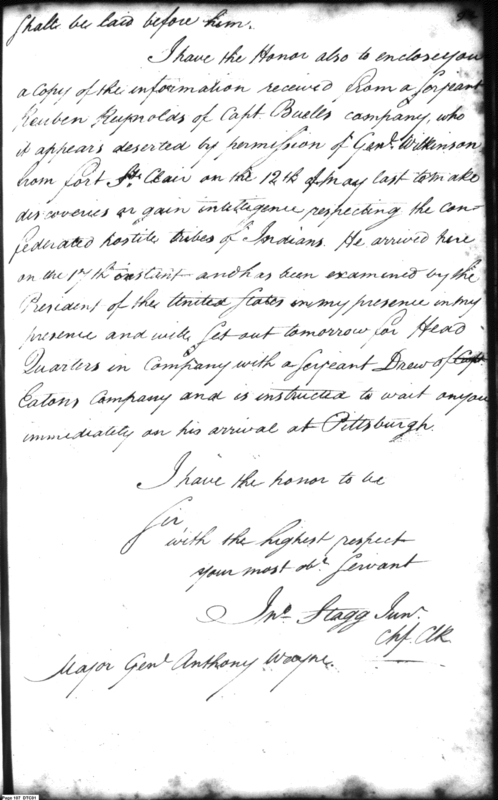 shall be laid before him.
I have the Honor also to enclose you
a copy of the information received from a Serjeant
Reuben Reynolds of Capt. Buells company, who
it appears deserted by permission of Genl. Wilkinson
from fort St. Clair on the 12th of May last to make
discoveries or gain intelligence respecting the con-
federated hostile tribes of Indians. He arrived here
on the 17th instant and has been examined by the
President of the United States in my presence in my
presence and will set out tomorrow for Head
Quarters in company with a serjeant Drew of Capt.
Eatons company and is instructed to wait on you
immediately on his arrival at Pittsburgh.
I have the honor to be
Sir
with the highest respect
your most obt. Servant
Jno. Stagg Junr.
Chf. Clk.
Major Genl. Anthony Wayne.
Page 107 DTC01